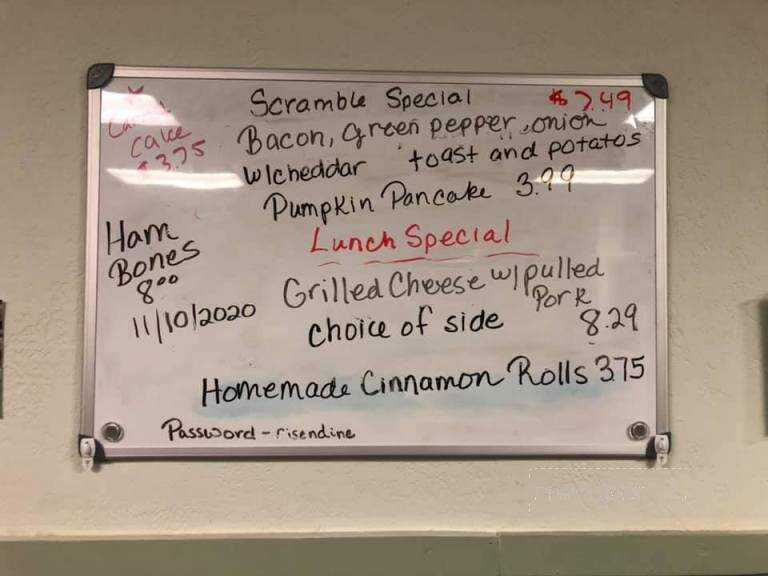 Scramble Special $7.49
Bacon, Green pepper, onion
w/cheddar toast and potatos
Pumpkin Pancake 3.99
cake
$3.75
Ham
Bones
8.00
11/10/2020
Lunch Special
Grilled Cheese w/pulled
Pork
choice of side 8.29
Homemade Cinnamon Rolls 3.75
Password - risendine